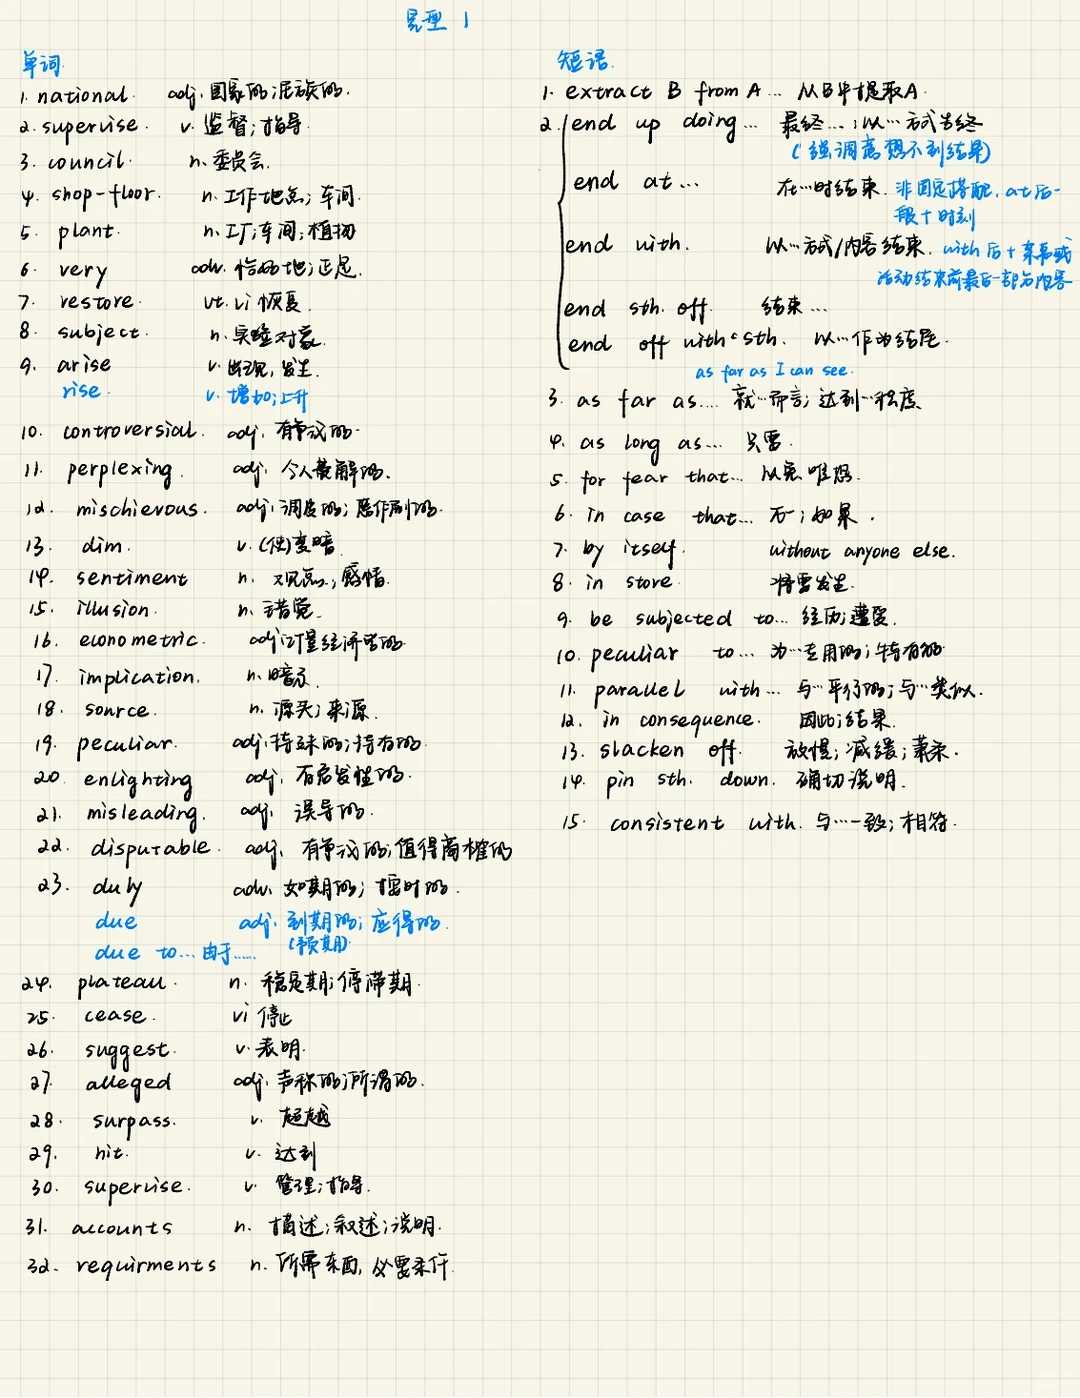 完型 1
单词.
1. national. adj. 国家的;民族的.
2. supervise. v. 监督;指导.
3. council. n. 委员会.
4. shop-floor. n. 工作地点; 车间.
5. plant. n. 工厂;车间;植物
6. very adv. 恰好地;正是.
7. restore. vt. vi 恢复.
8. subject. n. 实验对象.
9. arise v. 出现,发生.
rise. v. 增加;上升
10. controversial. adj. 有争议的.
11. perplexing. adj. 令人费解的.
12. mischievous. adj. 调皮的; 恶作剧的.
13. dim. v. (使)变暗.
14. sentiment n. 观点;感情.
15. illusion. n. 错觉.
16. econometric. adj 计量经济学的
17. implication. n. 暗示.
18. source. n. 源头; 来源.
19. peculiar. adj. 特殊的;特有的.
20. enlighting adj. 有启发性的.
21. misleading. adj. 误导的.
22. disputable. adj. 有争议的;值得商榷的
23. duly adv. 如期的; 按时的.
due adj. 到期的; 应得的.
(预期)
due to... 由于......
24. plateau. n. 稳定期;停滞期.
25. cease. vi 停止
26. suggest. v. 表明.
27. alleged adj. 声称的;所谓的.
28. surpass. v. 超越
29. hit. v. 达到
30. supervise. v. 管理;指导.
31. accounts n. 描述;叙述;说明.
32. requirments n. 所需东西,必要条件.
短语.
1. extract B from A... 从B中提取A.
2. end up doing... 最终...;以...方式告终
(强调意想不到结果)
end at... 在...时结束. 非固定搭配, at后一
般+时刻
end with. 以...方式/内容结束. with后+
活动结束前最后一部分内容
end sth. off. 结束...
end off with sth. 以...作为结尾.
as far as I can see.
3. as far as... 就...而言; 达到...程度.
4. as long as... 只要.
5. for fear that... 以免 唯恐.
6. in case that... 如果.
7. by itself. without anyone else.
8. in store. 将要发生.
9. be subjected to... 经历;遭受.
10. peculiar to... 为...专用的;特有的
11. parallel with... 与...平行的;与...类似.
12. in consequence. 因此;结果.
13. slacken off. 放慢;减缓;萧条.
14. pin sth. down. 确切说明.
15. consistent with. 与...一致;相符.